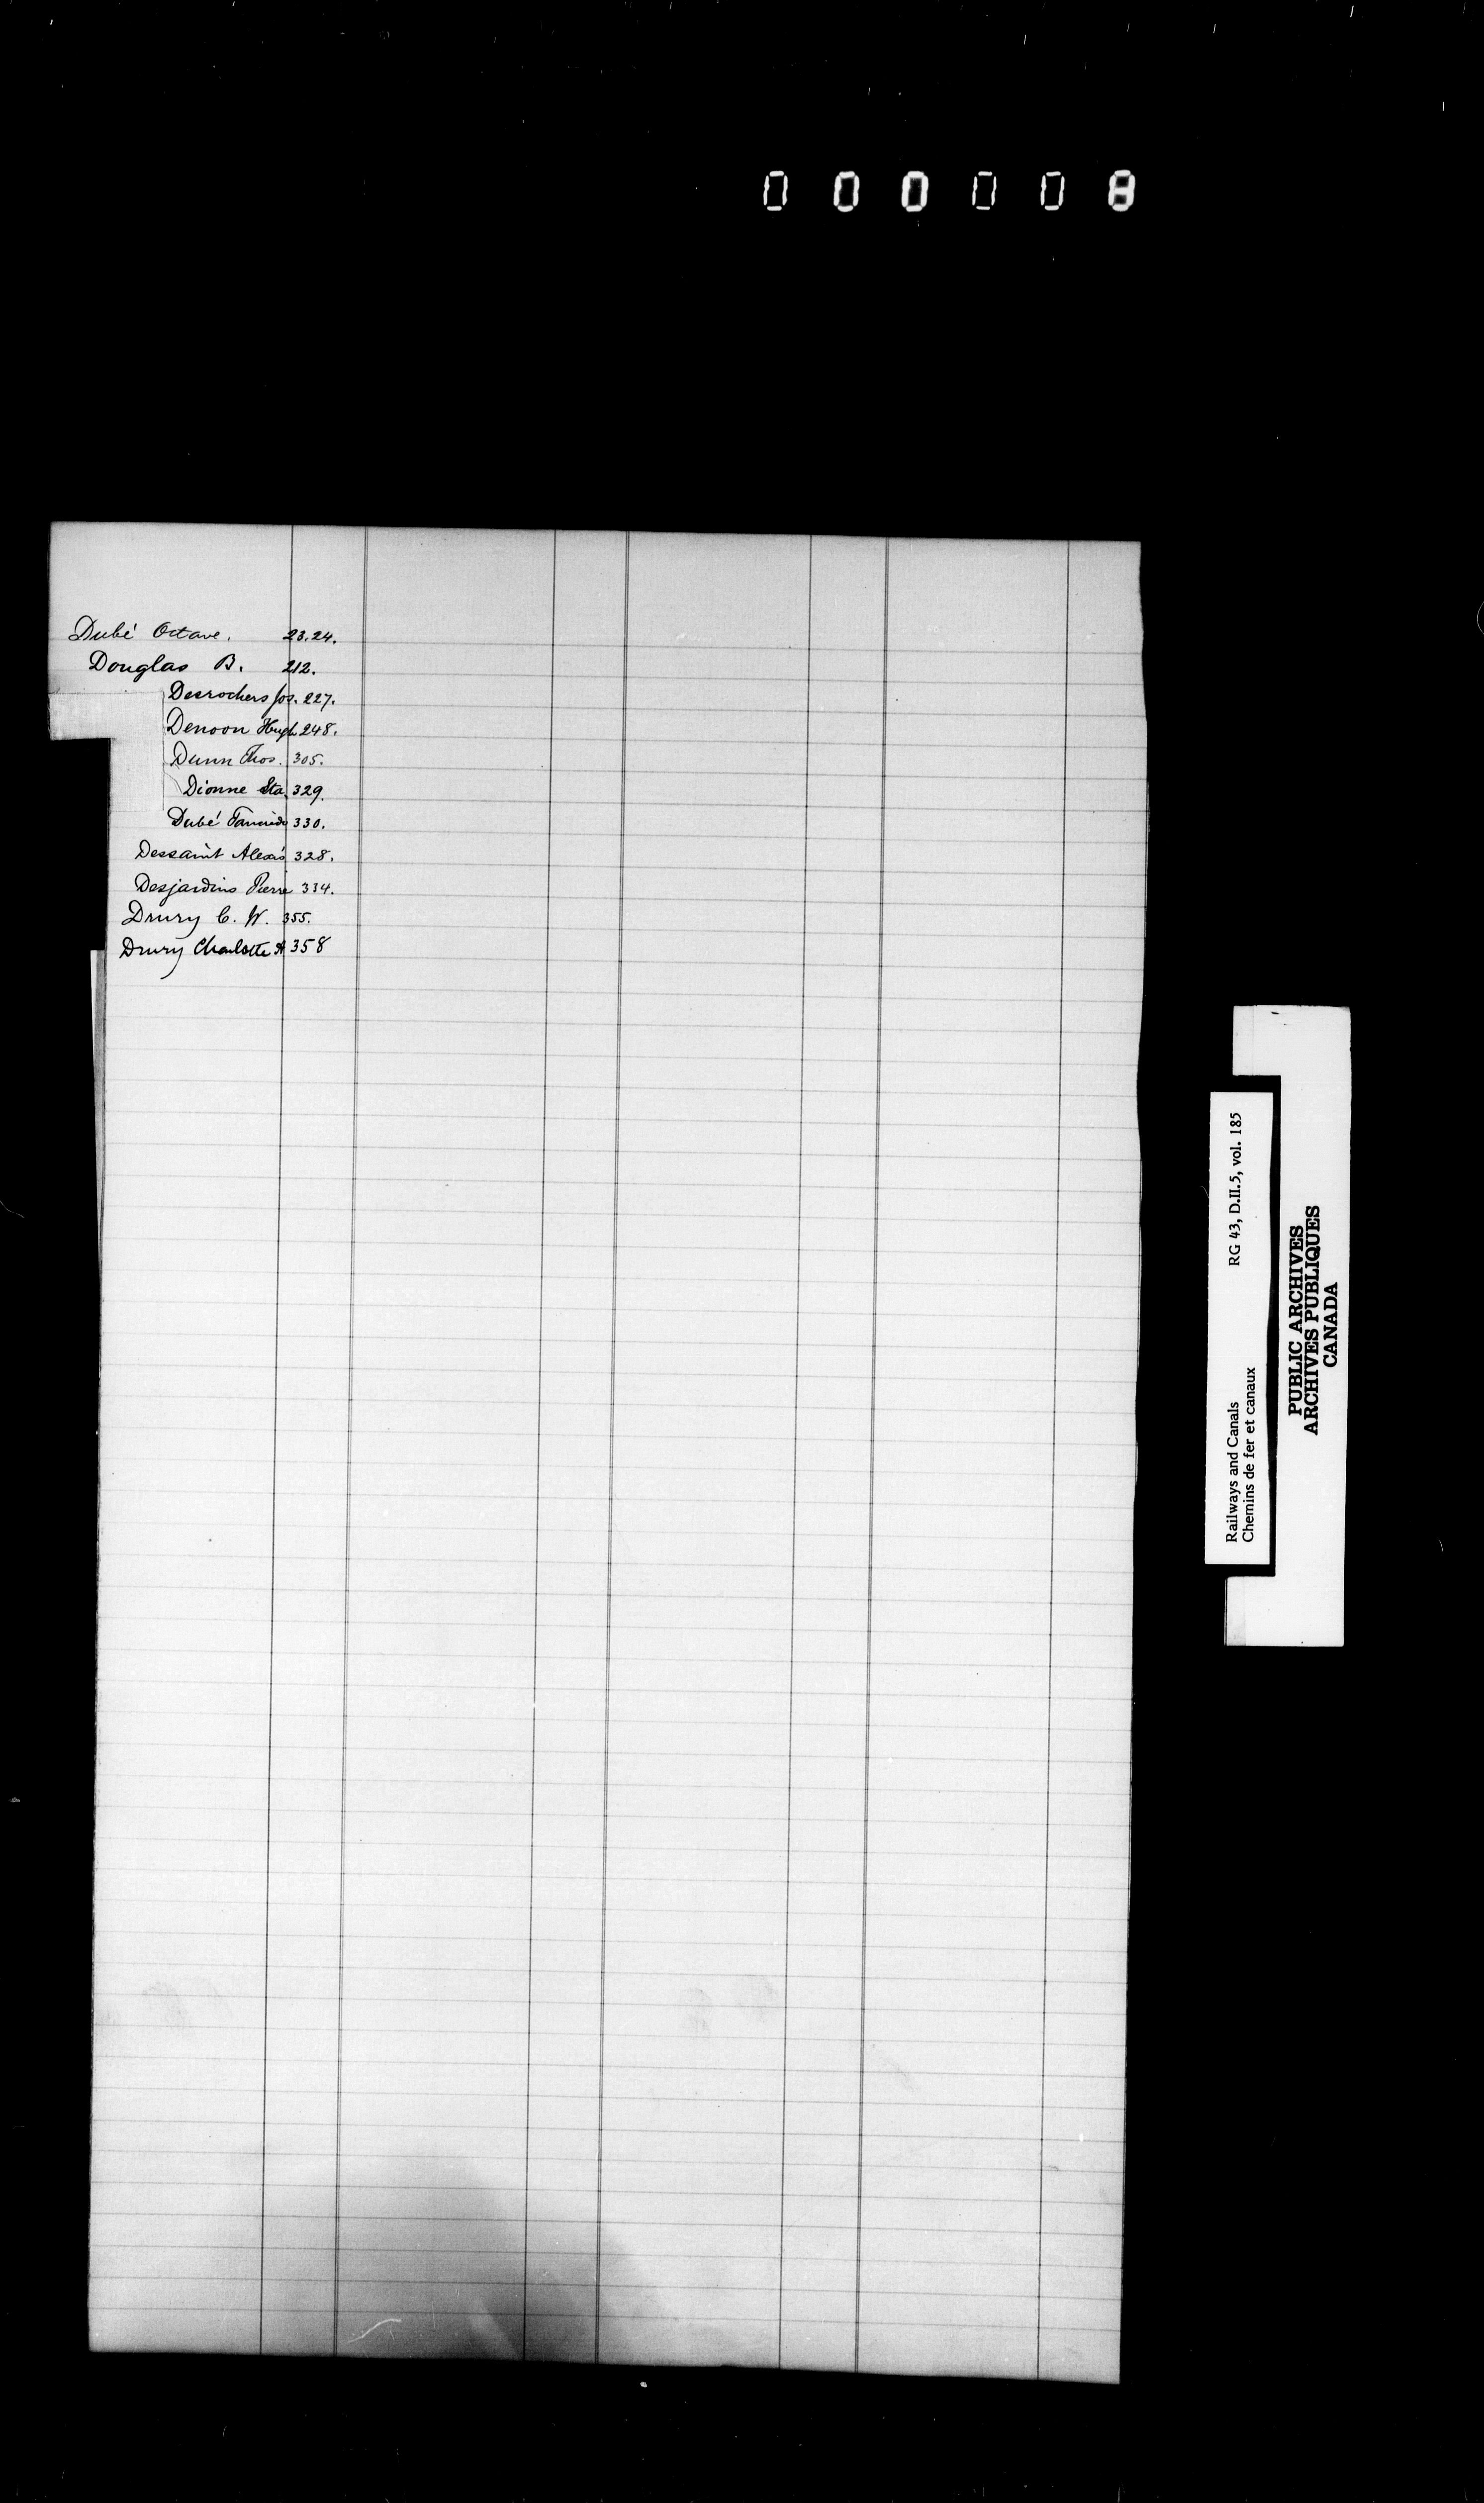 000008
Dubé Octave. 23.24.
Douglas B. 212.
Desrochers Jos. 227.
Denoon Hugh 248.
Dunn Thos. 305.
Dionne Sta. 329.
Dubé 330.
Dessaint Alexis 328.
Desjardins Pierre 334.
Drury C. W. 355.
Drury Charlotte A 358
Railways and Canals RG 43, D.II.5, vol. 185
Chemins de fer et canaux
PUBLIC ARCHIVES
ARCHIVES PUBLIQUES
CANADA